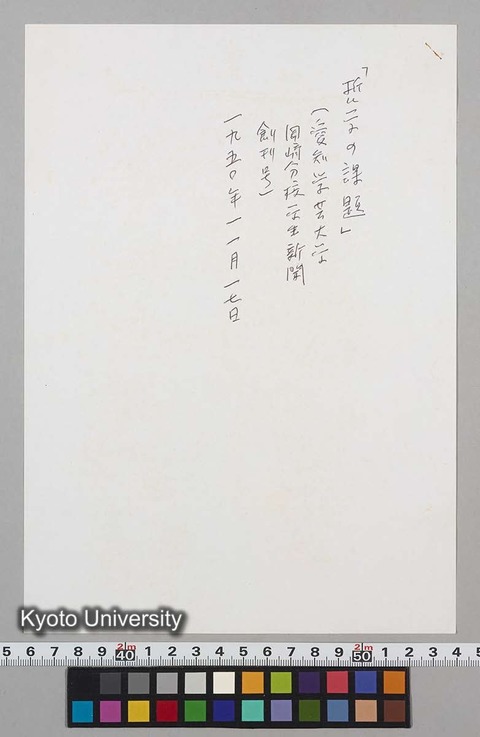 「哲学の課題」
(愛知学芸大学
岡崎分校学生新聞
創刊号)
一九五〇年一一月一七日
Kyoto University
5 6 7 8 9 2m 40 1 2 3 4 5 6 7 8 9 2m 50 1 2 3 4 5